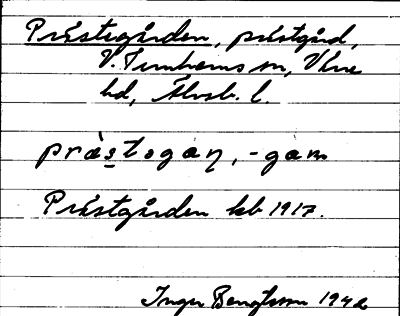 Prästegården, prästgård,
V. Tunhems sn, Väne
hd, Älvsb. l.
pràstogaɳ, -gam
Prästgården kb 1917.
Inger Bengtsson 1942